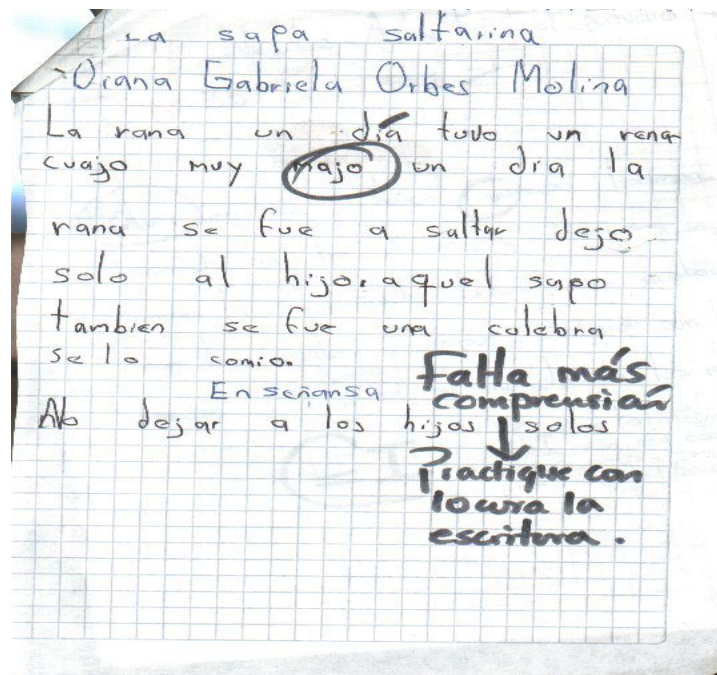 La sapa saltarina
Diana Gabriela Orbes Molina
La rana un día tuvo un rena
cuajo muy majo un dia la
rana se fue a saltar dejo
solo al hijo. aquel sapo
tambien se fue una culebra
se lo comio.
Enseñansa
No dejar a los hijos solos
Falla más
comprensian
Practique con
locura la
escritura.